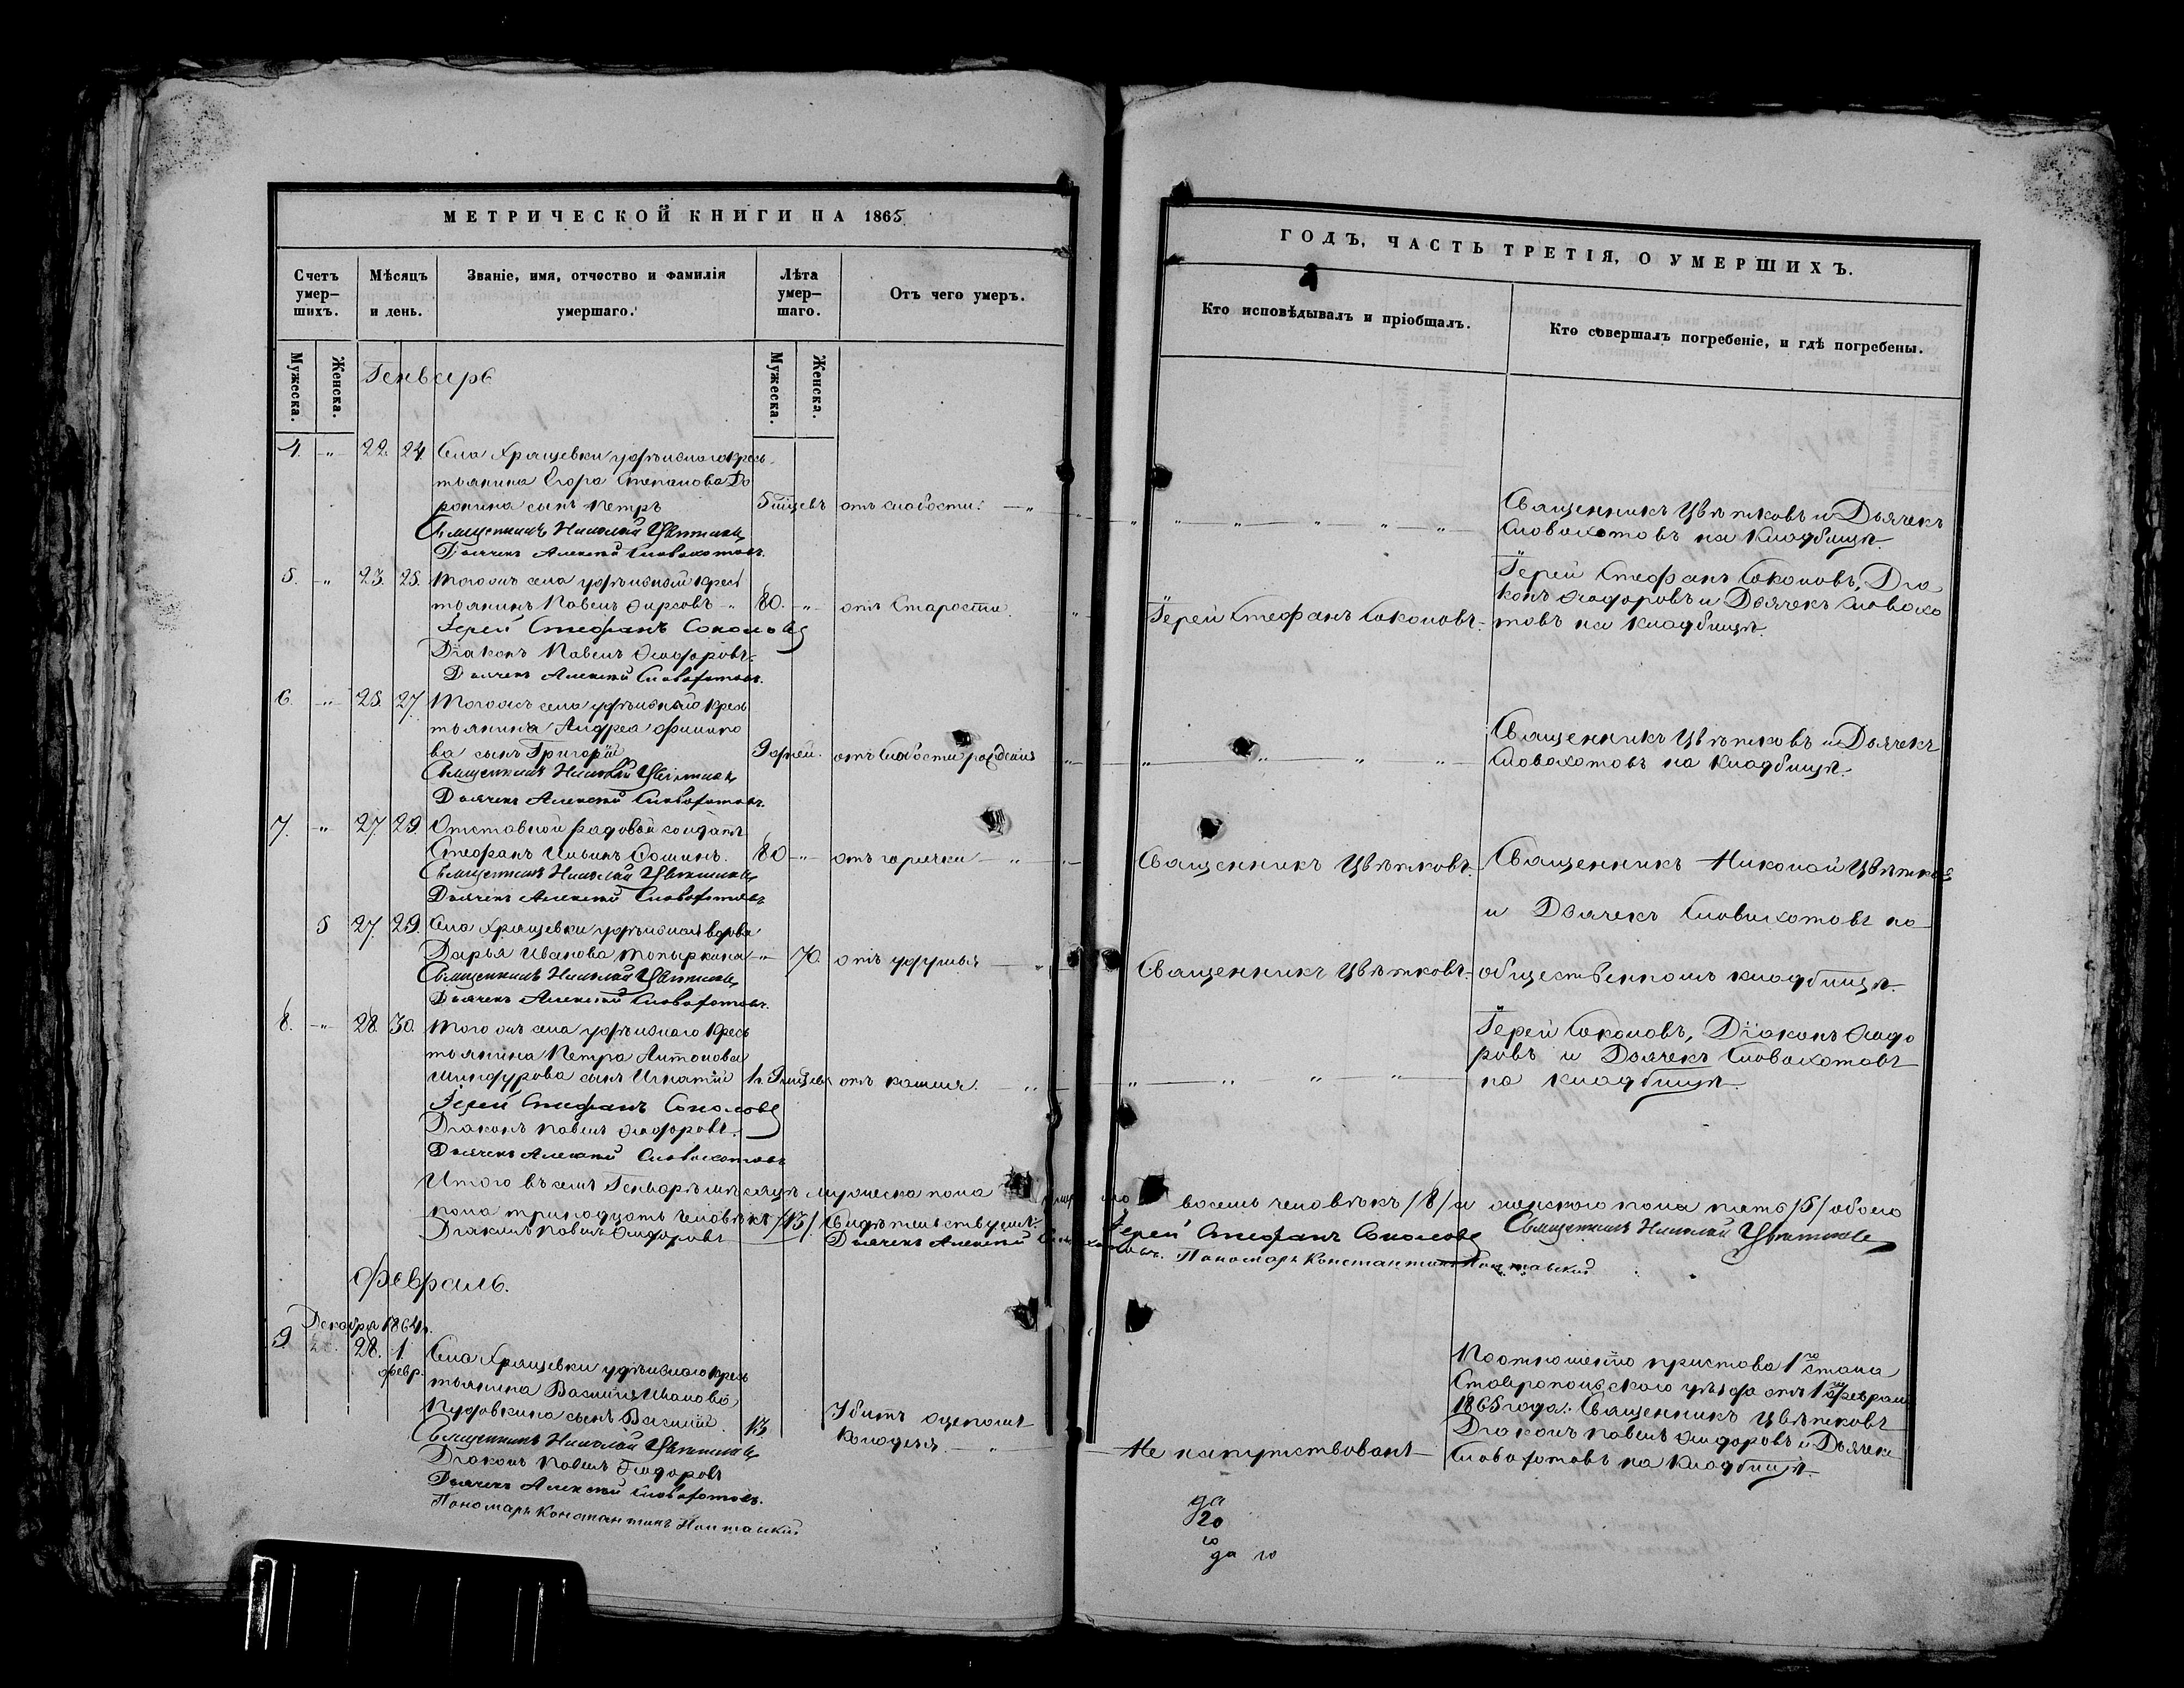 МЕТРИЧЕСКОЙ КНИГИ НА 1865
Счетъ умер-
шихъ.
Мѣсяцъ
и день.
Званіе, имя, отчество и фамилія
умершаго.
Лѣта
умер-
шаго.
Отъ чего умеръ.
Мужеска.
Женска.
Мужеска.
Женска.
Генварь
4. -"- 22. 24. Села Хрящевки удѣльнаго кресть-
тьянина Егора Степанова До
ронина сынъ Петръ
отъ слабости.
Священникъ Николай Цвѣтковъ
Дьячекъ Алексѣй Словохотовъ.
5. -"- 23. 25. Того жъ села удѣльный крест
тьянинъ Павелъ Фирсовъ -"- 80. -"- отъ старости.
Іерей Стефанъ Соколовъ
Діаконъ Павелъ Ѳеодоровъ.
Дьячекъ Алексѣй Словохотовъ.
6. -"- 25. 27. Того жъ села удѣльнаго кресть
тьянина Андрея Филипо
ва сынъ Григорій 9 дней. отъ слабости рожденія
Священникъ Николай Цвѣтковъ
Дьячекъ Алексѣй Словохотовъ.
7. -"- 27. 29. Отставной рядовой солдатъ
Стефанъ Ильинъ Сошинъ. 80 -"- отъ горячки -"-
Священникъ Николай Цвѣтковъ
Дьячекъ Алексѣй Словохотовъ
5 27. 29. Села Хрящевки удѣльная вдова
Дарья Иванова Топыркина -"- 70. отъ удушья
Священникъ Николай Цвѣтковъ
Дьячекъ Алексѣй Словохотовъ.
8. -"- 28. 30. Того жъ села удѣльнаго кресть
тьянина Петра Антонова
сынъ Игнатій отъ кашля.
Іерей Стефанъ Соколовъ
Діаконъ Павелъ Ѳеодоровъ.
Дьячекъ Алексѣй Словохотовъ
Итого въ семъ Генварѣ мѣсяцѣ мужеска пола
пола тринадцать человѣкъ /13/. Свидѣтельствуемъ:
Діаконъ Павелъ Ѳеодоровъ Дьячекъ Алексѣй Словохотовъ.
Февраль.
Декабря 1864 г.
9. 28. 1. Февр. Села Хрящевки удѣльнаго кресть
тьянина Василія Иванова
Пудовкина сынъ Василій. 13 Убитъ оцепомъ
колодезя. -"-
Священникъ Николай Цвѣтковъ
Діаконъ Павелъ Ѳеодоровъ
Дьячекъ Алексѣй Словохотовъ.
Пономарь Константинъ Полтавскій
ГОДЪ, ЧАСТЬ ТРЕТІЯ, О УМЕРШИХЪ.
Кто исповѣдывалъ и пріобщалъ.
Кто совершалъ погребеніе, и гдѣ погребены.
Священникъ Цвѣтковъ и Дьячекъ
Словохотовъ на кладбищѣ.
Іерей Стефанъ Соколовъ.
Іерей Стефанъ Соколовъ, Діа
конъ Ѳеодоровъ и Дьячекъ Словохо
товъ на кладбищѣ.
Священникъ Цвѣтковъ и Дьячекъ
Словохотовъ на кладбищѣ.
Священникъ Цвѣтковъ.
Священникъ Николай Цвѣтковъ
и Дьячекъ Словохотовъ на
Священникъ Цвѣтковъ.
общественномъ кладбищѣ.
Іерей Соколовъ, Діаконъ Ѳеодо
ровъ и Дьячекъ Словохотовъ
на кладбищѣ.
восемь человѣкъ /8/ и женскаго пола пять /5/ обоего
Іерей Стефанъ Соколовъ Священникъ Николай Цвѣтковъ
Пономарь Константинъ Полтавскій
По отношенію пристава 1го стана
Ставропольскаго уѣзда отъ 1го февраля
1865 года. Священникъ Цвѣтковъ
Діаконъ Павелъ Ѳеодоровъ и Дьячекъ
Не напутствованъ
Словохотовъ на кладбищѣ.
да
го
да го